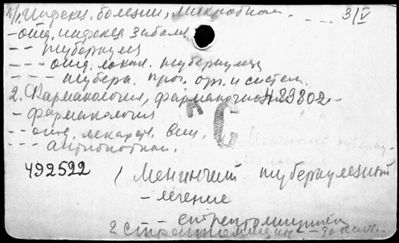 1/. Инфекц. болезни, микробная.. 3/V
- общ. инфекц. забол.
- - туберкулез
- - - общ. локал. туберкулез
- - - - туберк. проч. орг. и систем.
2. Фармакология, фармакогнозия 489802-
- фармакология
- - общ. лекарств. вещ.
- - - антибиотики.
С
492522 / Менингит туберкулезный
- лечение
- стрептомицин
2 Стрептомицин -